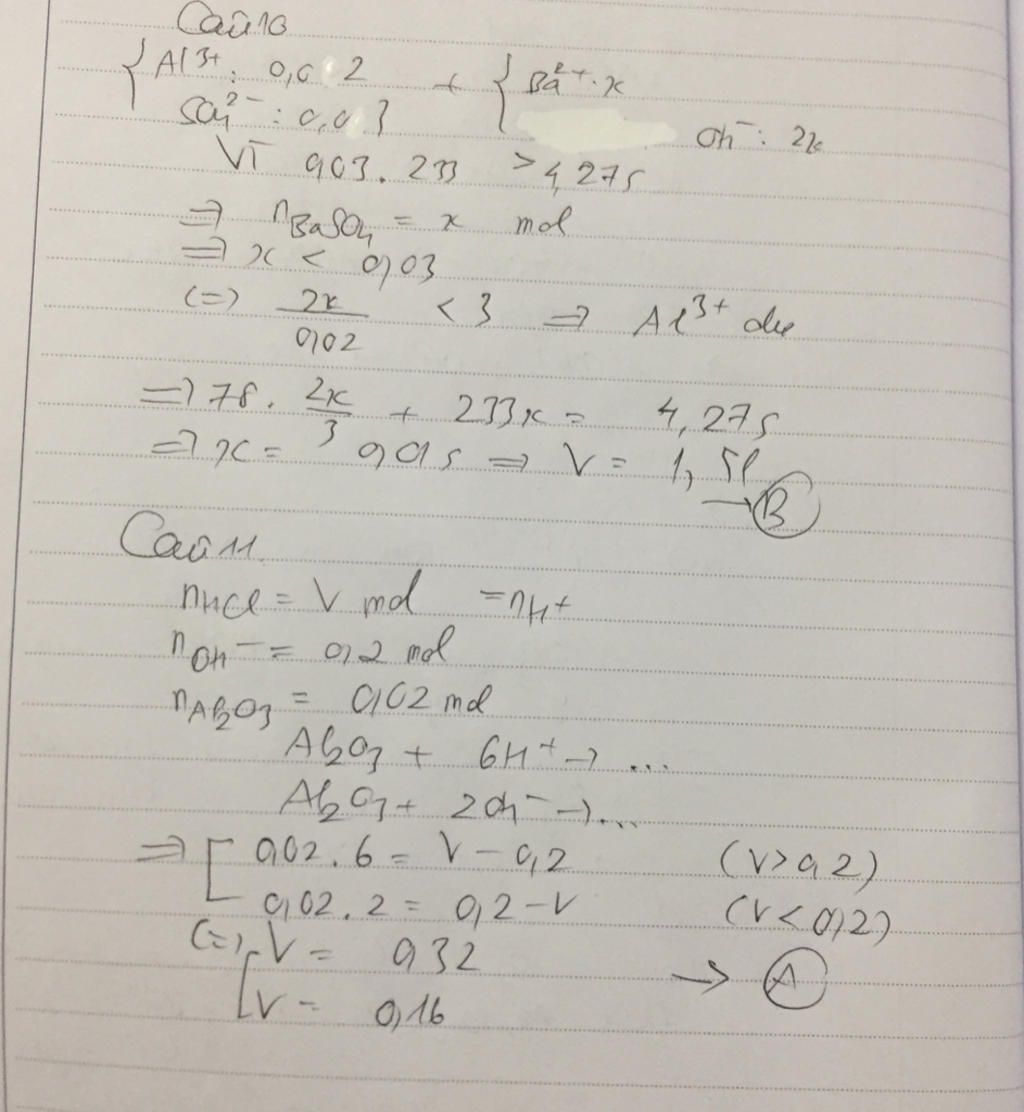 Câu 10
{ Al³⁺ : 0,02 + { Ba²⁺ : x
SO₄²⁻ : 0,03 OH⁻ : 2x
Vì 0,03 . 233 > 4,275
=> nBaSO₄ = x mol
=> x < 0,03
(=) 2x/0,02 < 3 => Al³⁺ dư
=> 78 . 2x/3 + 233x = 4,275
=> x = 0,015 => V = 1,5l
→ B
Câu 11
nHCl = V mol = nH⁺
nOH⁻ = 0,2 mol
nAl₂O₃ = 0,02 mol
Al₂O₃ + 6H⁺ → ...
Al₂O₃ + 2OH⁻ → ...
=> [ 0,02 . 6 = V – 0,2 (V > 0,2)
0,02 . 2 = 0,2 – V (V < 0,2)
(=) [ V = 0,32 → A
V = 0,16